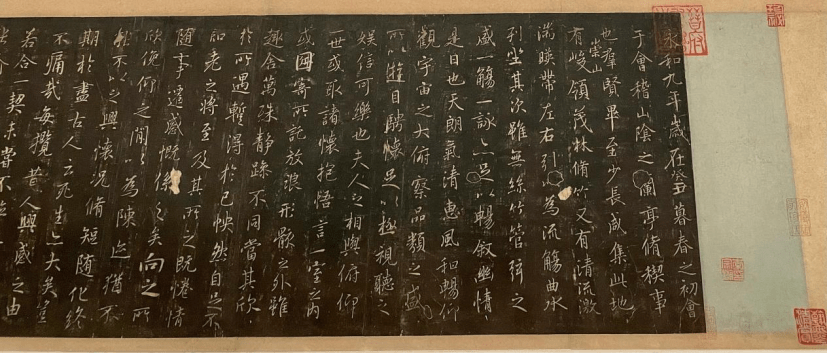 永和九年歲在癸丑暮春之初會
于會稽山陰之蘭亭脩禊事
也羣賢畢至少長咸集此地
有崇山峻領茂林脩竹又有清流激
湍暎帶左右引以為流觴曲水
列坐其次雖無絲竹管弦之
盛一觴一詠亦足以暢敘幽情
是日也天朗氣清惠風和暢仰
觀宇宙之大俯察品類之盛
所以遊目騁懷足以極視聽之
娛信可樂也夫人之相與俯仰
一世或取諸懷抱悟言一室之內
或因寄所託放浪形骸之外雖
趣舍萬殊靜躁不同當其欣
於所遇暫得於己怏然自足不
知老之將至及其所之既惓情
隨事遷感慨係之矣向之所
欣俛仰之間以為陳迹猶不
能不以之興懷況脩短隨化終
期於盡古人云死生亦大矣豈
不痛哉每攬昔人興感之由
若合一契未嘗不